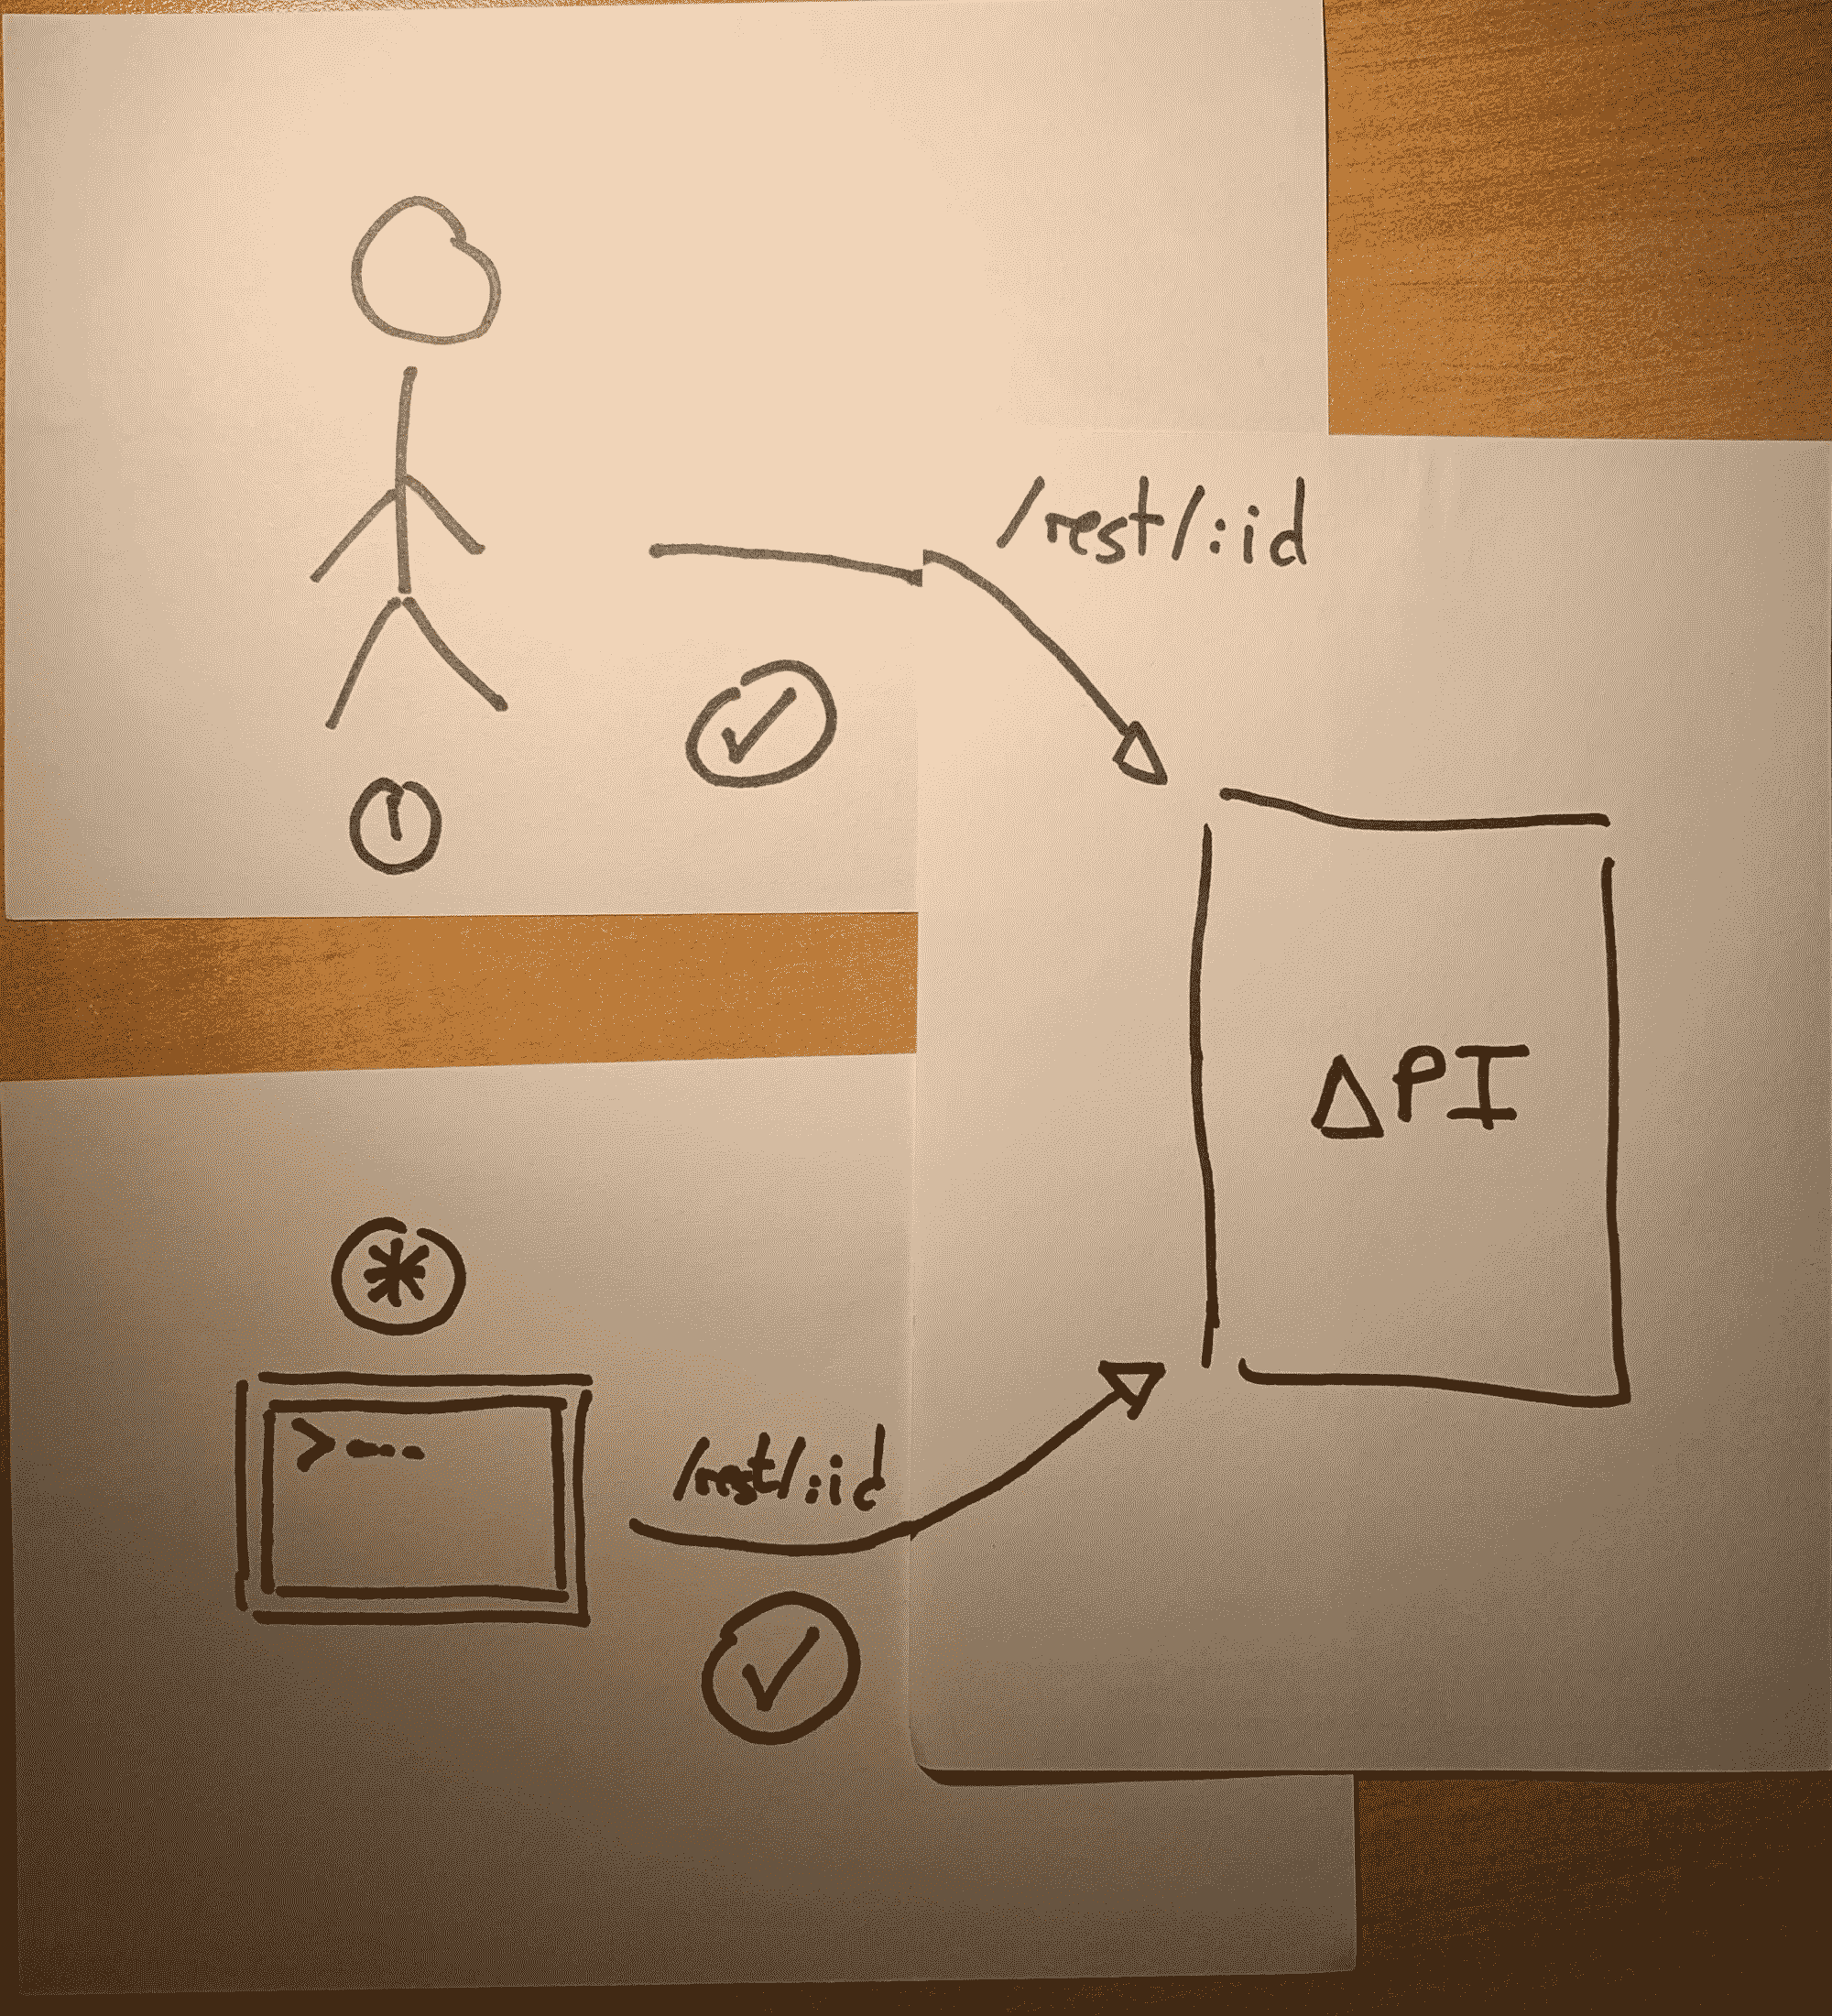 /rest/:id
API
*
>---
/rest/:id